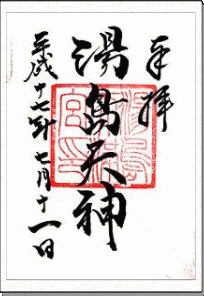 奉拝
湯島天神
平成十七年七月十一日